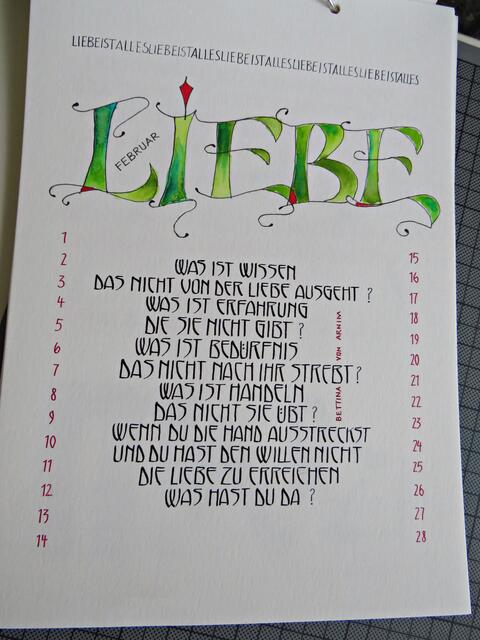 LIEBEISTALLESLIEBEISTALLESLIEBEISTALLESLIEBEISTALLESLIEBEISTALLES
LIEBE
FEBRUAR
1
2
3
4
5
6
7
8
9
10
11
12
13
14
WAS IST WISSEN
DAS NICHT VON DER LIEBE AUSGEHT ?
WAS IST ERFAHRUNG
DIE SIE NICHT GIBT ?
WAS IST BEDÜRFNIS
DAS NICHT NACH IHR STREBT ?
WAS IST HANDELN
DAS NICHT SIE ÜBT ?
WENN DU DIE HAND AUSSTRECKST
UND DU HAST DEN WILLEN NICHT
DIE LIEBE ZU ERREICHEN
WAS HAST DU DA ?
BETTINA VON ARNIM
15
16
17
18
19
20
21
22
23
24
25
26
27
28